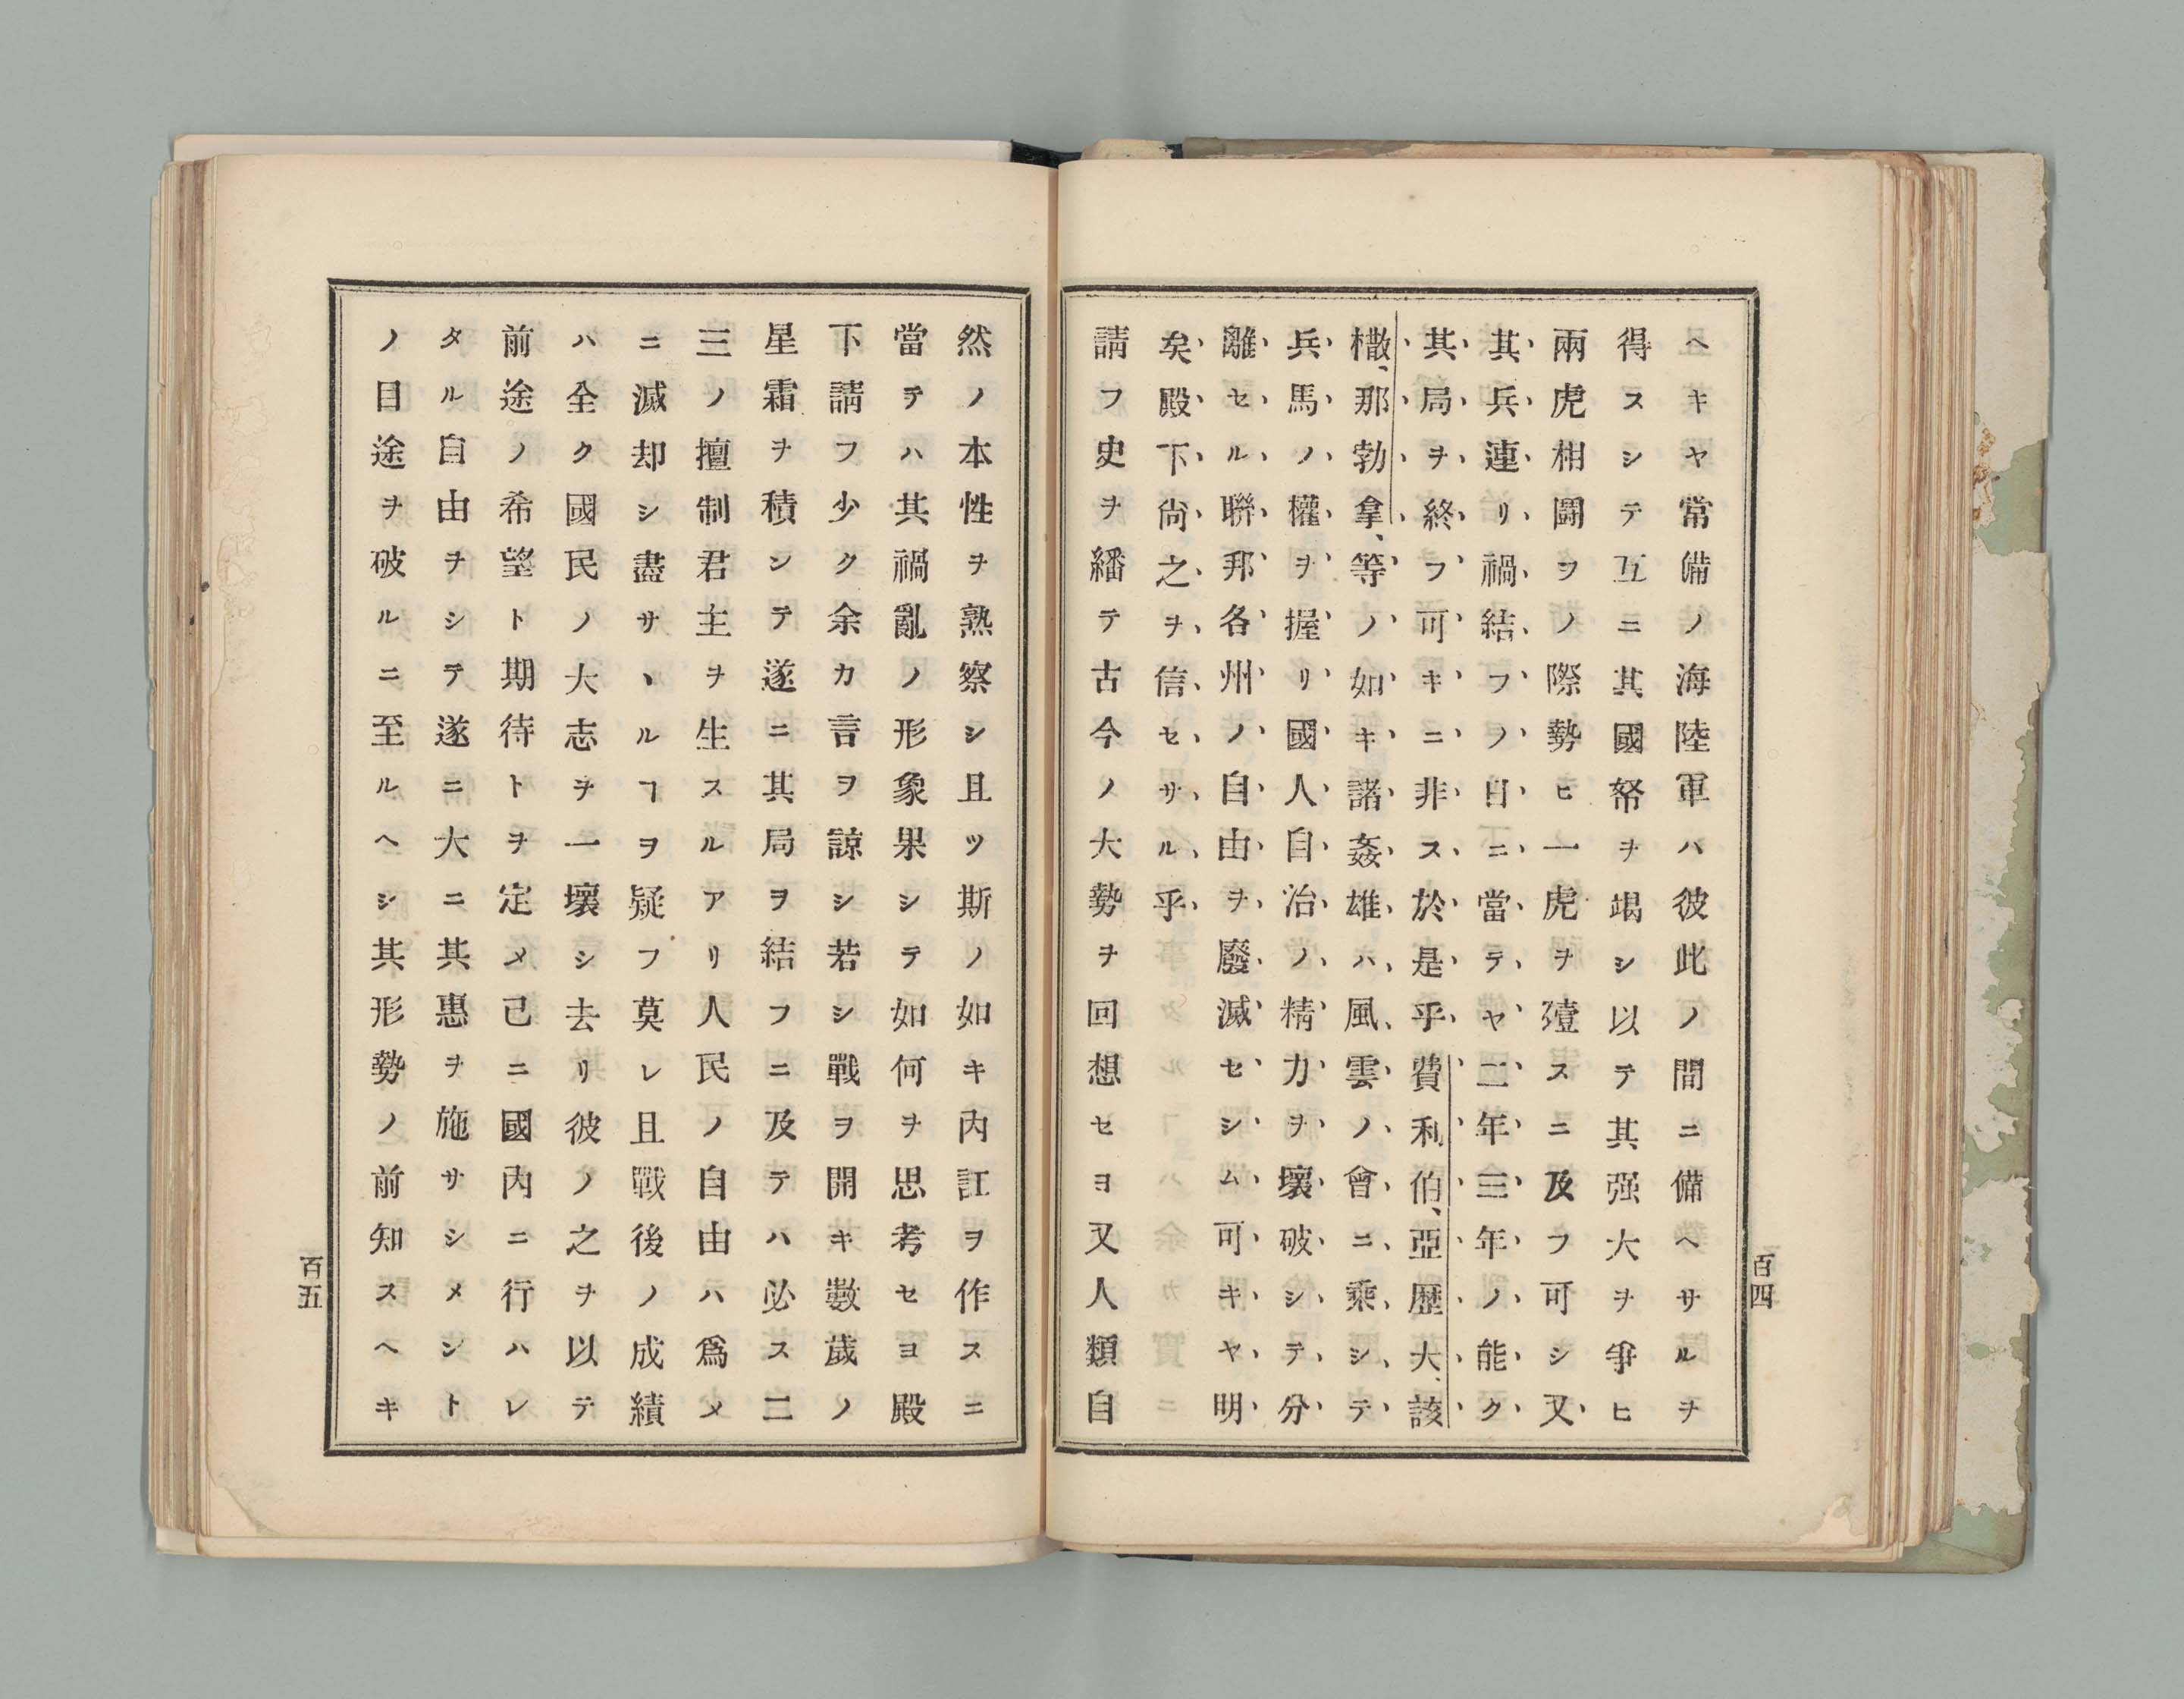 ヘキヤ常備ノ海陸軍ハ彼此ノ間ニ備ヘサルヲ
得スシテ互ニ其國帑ヲ竭シ以テ其强大ヲ爭ヒ
兩虎相鬪フノ際勢ヒ一虎ヲ殪スニ及フ可シ又
其兵連リ禍結フノ日ニ當テヤ二年三年ノ能ク
其局ヲ終フ可キニ非ス於是乎費利伯、亞歷大、該
撒、那勃拿、等ノ如キ諸姦雄ハ風雲ノ會ニ乘シテ
兵馬ノ權ヲ握リ國人自治ノ精力ヲ壞破シテ分
離セル聯邦各州ノ自由ヲ廢滅セシム可キヤ明
矣殿下尙之ヲ信セサル乎
請フ史ヲ繙テ古今ノ大勢ヲ回想セヨ又人類自
百四
然ノ本性ヲ熟察シ且ツ斯ノ如キ內訌ヲ作スニ
當テハ其禍亂ノ形象果シテ如何ヲ思考セヨ殿
下請フ少ク余カ言ヲ諒シ若シ戰ヲ開キ數歲ノ
星霜ヲ積シテ遂ニ其局ヲ結フニ及テハ必ス二
三ノ擅制君主ヲ生スルアリ人民ノ自由ハ爲メ
ニ滅却シ盡サヽルヿヲ疑フ莫レ且戰後ノ成績
ハ全ク國民ノ大志ヲ一壞シ去リ彼ノ之ヲ以テ
前途ノ希望ト期待トヲ定メ己ニ國內ニ行ハレ
タル自由ヲシテ遂ニ大ニ其惠ヲ施サシメント
ノ目途ヲ破ルニ至ルヘシ其形勢ノ前知スヘキ
百五